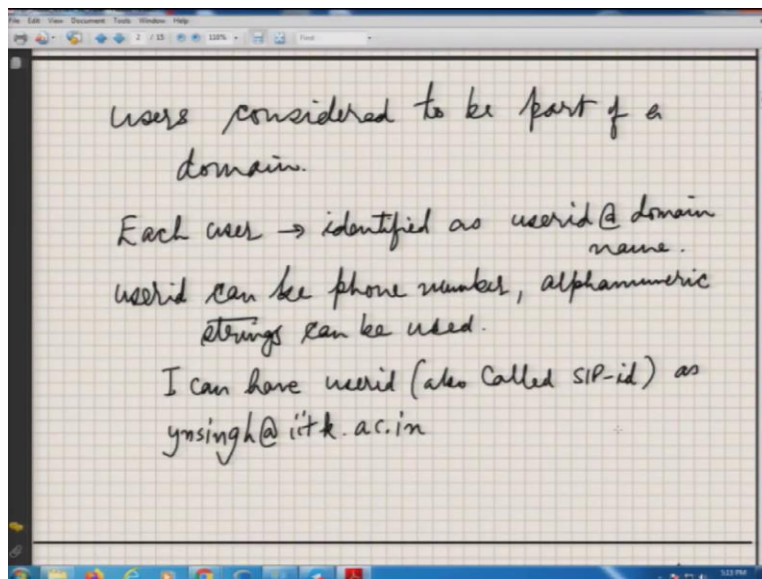 File Edit View Document Tools Window Help
2 / 15 110% Find
users considered to be part of a
domain.
Each user → identified as userid@domain
name.
userid can be phone number, alphanumeric
strings can be used.
I can have userid (also called SIP-id) as
ynsingh@iitk.ac.in
5:13 PM